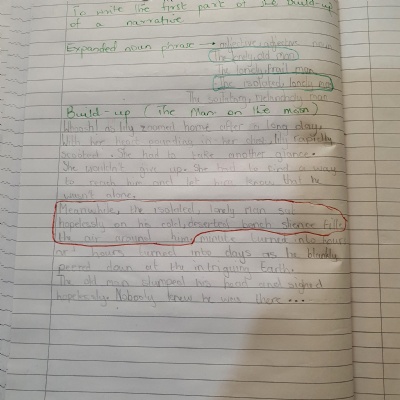 To write the first part of the build-up
of a narrative.
Expanded noun phrase → adjective, adjective noun
(The lonely, old man)
The lonely, frail man
The isolated, lonely man
The solitary, melancholy man
Build-up (The Man on the moon)
home after a long day.
With her heart pounding in her chest, rapidly
. She had to take another glance.
She wouldn't give up. She had to find a way
to reach him and let him know that he
wasn't alone.
Meanwhile, the isolated, lonely man sat
hopelessly on his cold, deserted bench silence fills
the air around him, minutes turned into hours
hours turned into days as he blankly
peered down at the intriguing Earth.
The old man slumped his head and sighed
hopelessly. Nobody knew he was there...